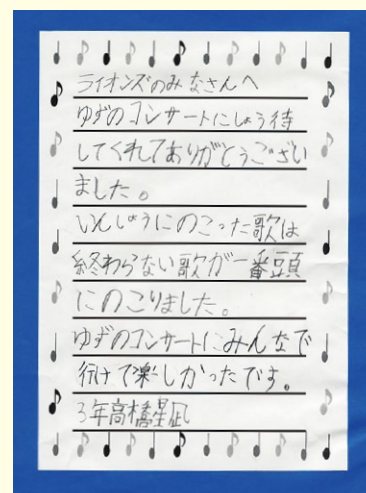 ライオンズのみなさんへ
ゆずのコンサートにしょう待
してくれてありがとうござい
ました。
いんしょうにのこった歌は
終わらない歌が一番頭
にのこりました。
ゆずのコンサートにみんなで
行けて楽しかったです。
3年高橋星凪